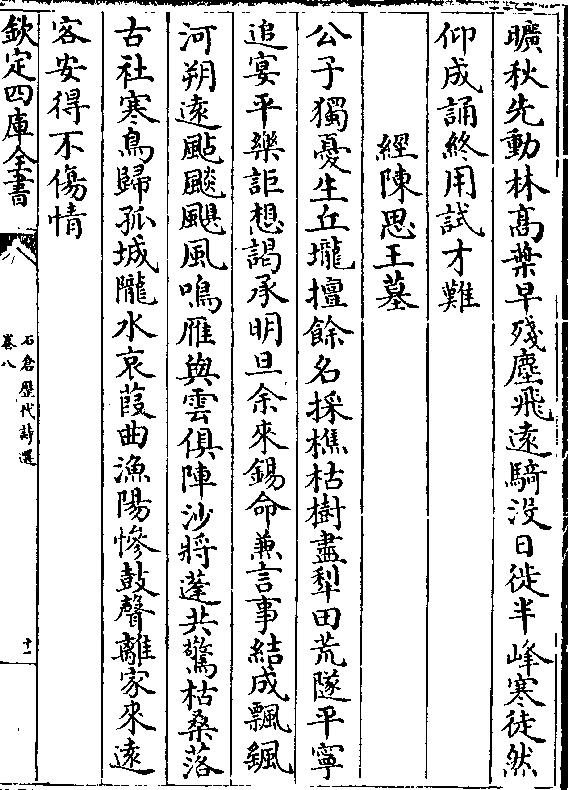 曠秋先動林髙葉早殘塵飛遠騎没日徙半峰寒徒然
仰成誦終用試才難
經陳思王墓
公子獨憂生丘壠擅餘名採樵枯樹盡犁田荒隧平寧
追宴平樂詎想謁承明旦余來錫命兼言事結成飄颻
河朔逺颭颷颶風鳴雁與雲俱陣沙將蓬共驚枯桑落
古社寒鳥歸孤城隴水哀葭曲漁陽慘鼓聲離家來逺
客安得不傷情
欽定四庫全書
石倉歷代詩選
卷八
十二